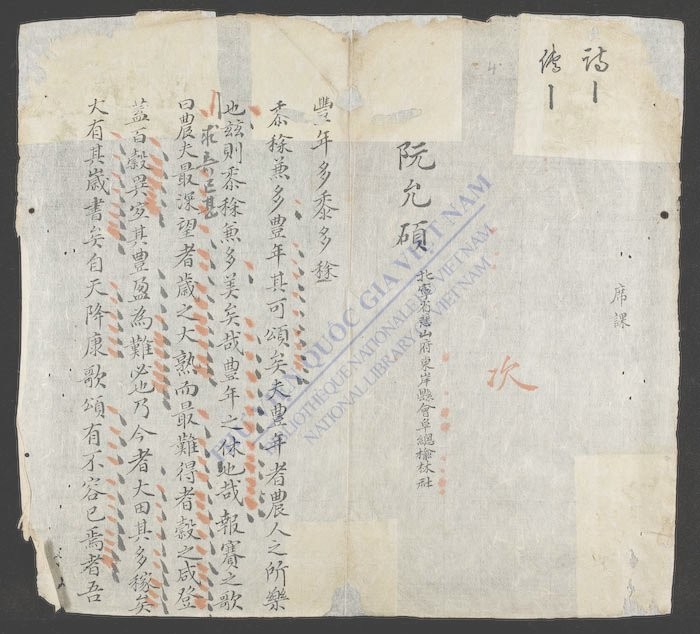 席課
詩一
傳一
次
阮允碩
北寧省慈山府東岸縣會阜總榆林社
豐年多黍多稌
黍稌兼多豐年其可頌矣夫豐年者農人之所樂
也兹則黍稌兼多美矣哉豐年之休也哉報賽之歌
曰農夫最深望者歲之大熟而最難得者穀之咸登
蓋百穀異宜其豐盈為難必也乃今者大田其多稼矣
大有其歲書矣自天降康歌頌有不容已焉者吾
THƯ VIỆN QUỐC GIA VIỆT NAM
BIBLIOTHÈQUE NATIONALE DU VIETNAM
NATIONAL LIBRARY OF VIETNAM